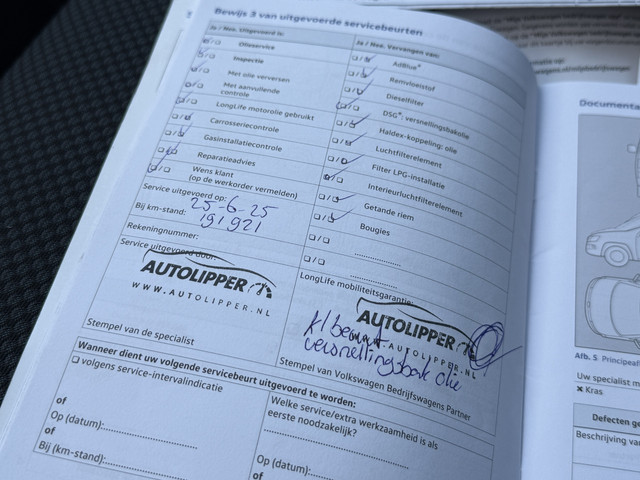 Bewijs 3 van uitgevoerde servicebeurten
Ja / Nee. Uitgevoerd is:
Olieservice
Inspectie
Met olie verversen
Met aanvullende controle
LongLife motorolie gebruikt
Carrosseriecontrole
Gasinstallatiecontrole
Reparatieadvies
Wens klant
(op de werkorder vermelden)
Service uitgevoerd op:
25-6-25
Bij km-stand:
191921
Rekeningnummer:
Service uitgevoerd door:
AUTOLIPPER
WWW.AUTOLIPPER.NL
Stempel van de specialist
Ja / Nee. Vervangen van:
AdBlue
Remvloeistof
Dieselfilter
DSG®: versnellingsbakolie
Haldex-koppeling: olie
Luchtfilterelement
Filter LPG-installatie
Interieurluchtfilterelement
Getande riem
Bougies
LongLife mobiliteitsgarantie:
AUTOLIPPER
AUTOLIPPER.NL
versnellingsbak olie
Stempel van Volkswagen Bedrijfswagens Partner
Wanneer dient uw volgende servicebeurt uitgevoerd te worden:
volgens service-intervalindicatie
of
Op (datum):
of
Bij (km-stand):
Welke service/extra werkzaamheid is als
eerste noodzakelijk?
Op (datum):
of
Documenta
Afb. 5 Principeaf
Uw specialist m
✖ Kras
Defecten ge
Beschrijving va